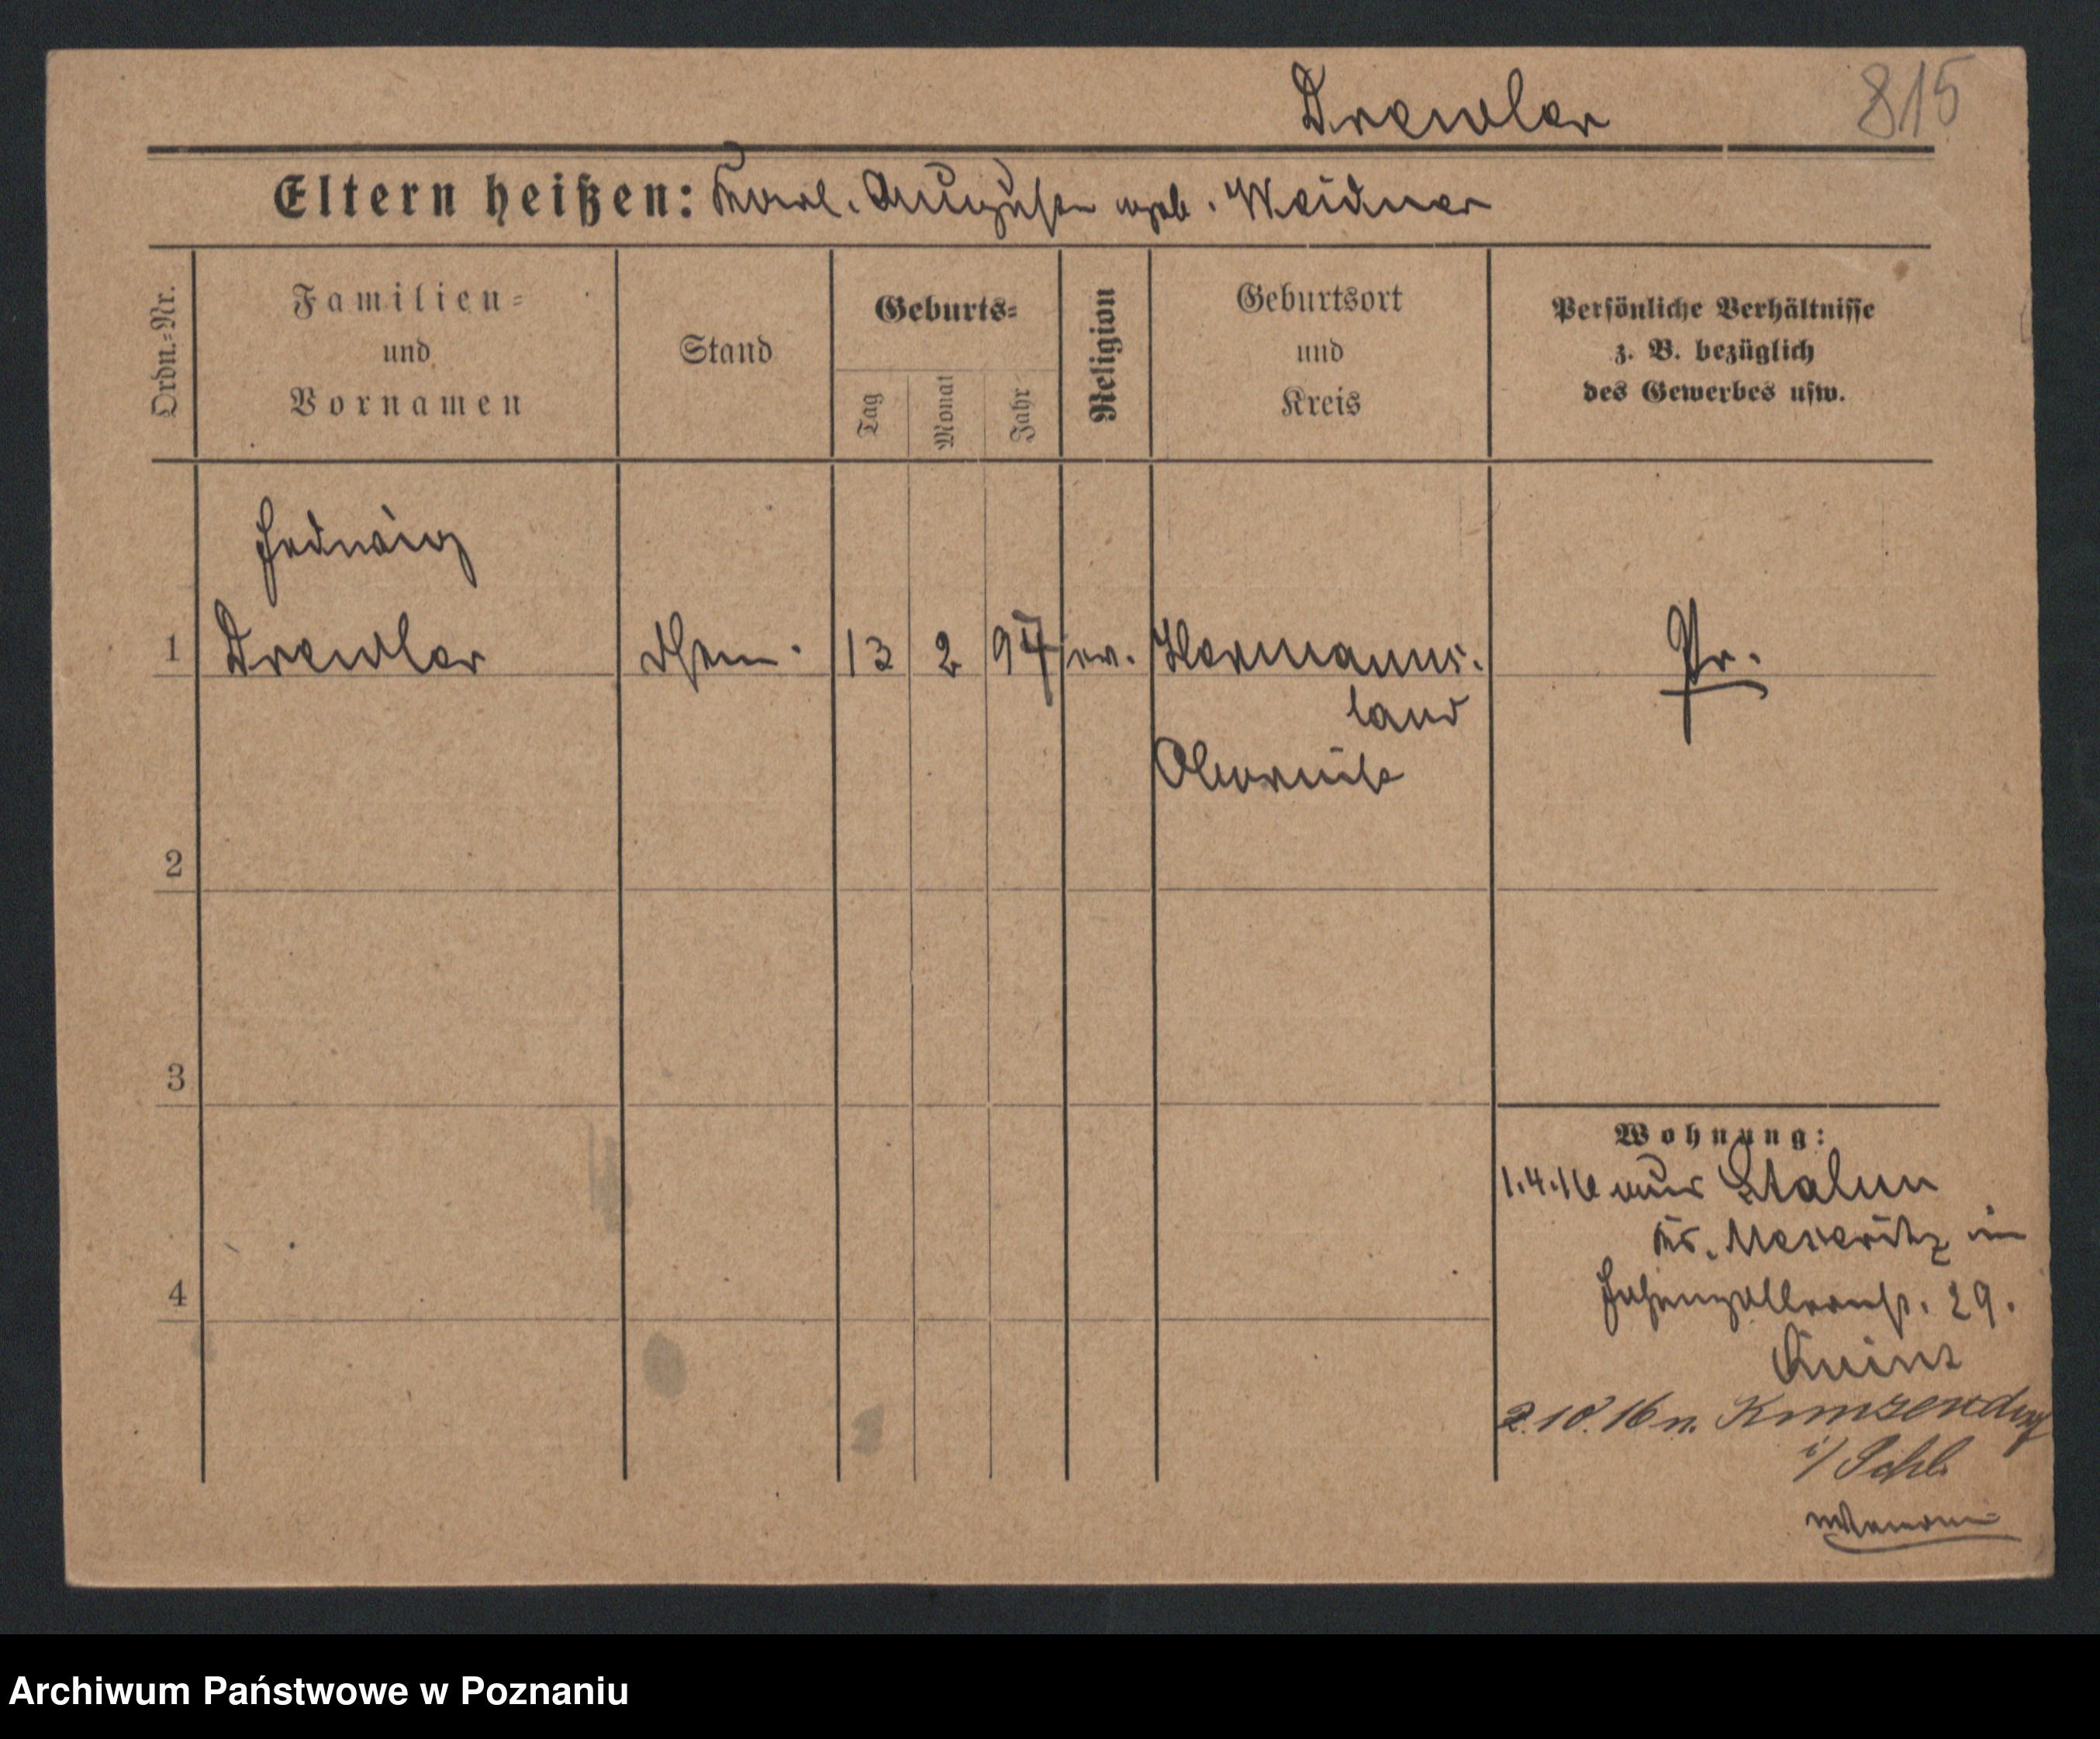 Drewler
815
Eltern heißen: Karl. Auguste geb. Weidner
Ordn.=Nr.
Familien=
und
Vornamen
Stand
Geburts=
Tag
Monat
Jahr
Religion
Geburtsort
und
Kreis
Persönliche Verhältnisse
z. B. bezüglich
des Gewerbes usw.
Hedwig
1 Drewler 13 2 94 ev. Hermanns.
land
Obornik
Pr.
2
3
4
Wohnung:
1.4.16 aus Stalun
Kr. Meseritz in
Hohenzollernst. 29.
2.10.16 n. Kunzendorf
i/Schl.
Archiwum Państwowe w Poznaniu